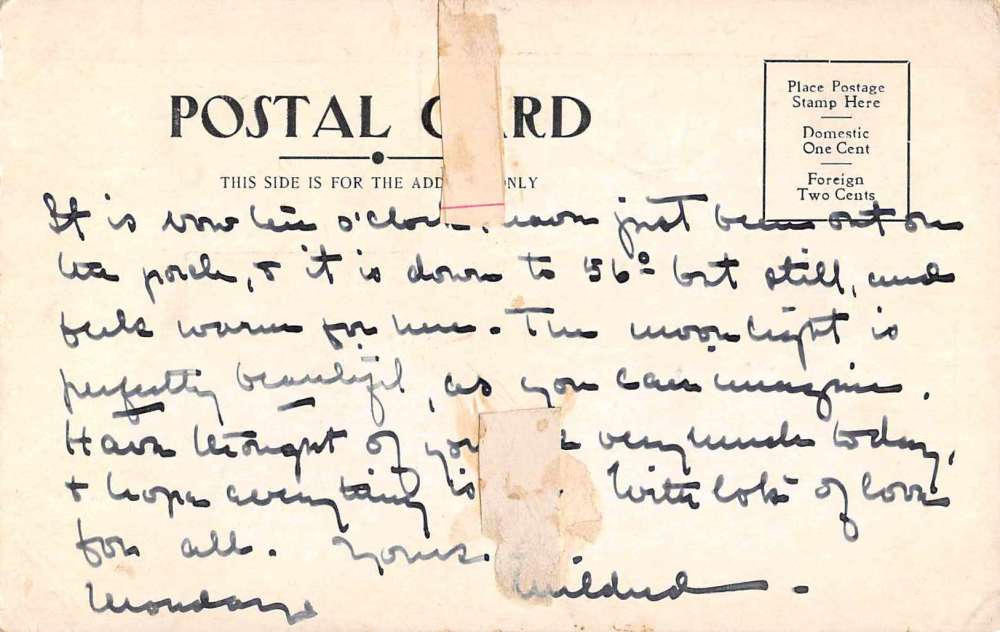 POSTAL C RD
THIS SIDE IS FOR THE ADD NLY
Place Postage
Stamp Here
Domestic
One Cent
Foreign
Two Cents
It is now ten o'clock. Have just been out on
the porch, & it is down to 56° but still, and
feels warm for here. The moonlight is
perfectly beautiful, as you can imagine.
Have thought of you very much today,
& hope everything is With lots of love
for all. Yours.
Mildred -
Monday